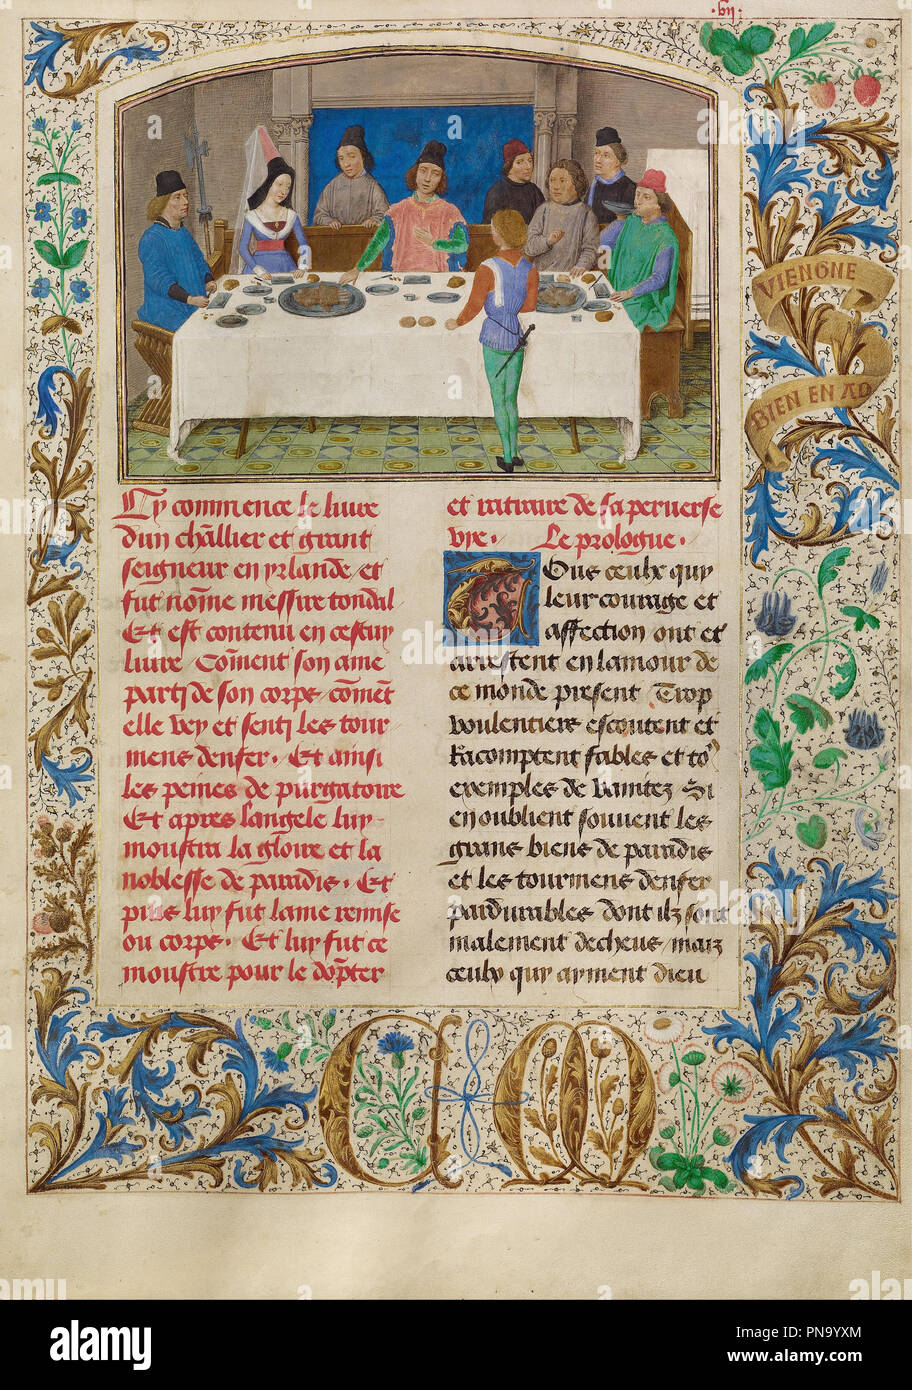 .vii.
VIENGNE
BIEN EN AD
Cy commence le liure
dun chlīier et grant
seigneur en yrlande et
fut nōme messire tondal
Et est contenu en cestuy
liure Cōment son ame
party de son corps cōmēt
elle vey et senty les tour
mens denfer. Et ainsi
les peines de purgatoire
Et apres langele luy
monstra la gloire et la
noblesse de paradis. Et
puis luy fut lame remise
ou corps. Et luy fut ce
monstre pour le dōpter
et retraire de sa peruerse
vye. Le prologue.
Tous ceulx quy
leur courage et
affection ont et
arrestent en lamour de
ce monde present Trop
voulentiers escoutent et
Racomptent fables et to9
exemples de vanitez Si
en oublient souuent les
grans biens de paradis
et les tourmens denfer
pardurables dont ilz sont
malement decheus / maiz
ceulx quy ayment dieu
C M
a
alamy
alamy
Image ID: PN9YXM
www.alamy.com